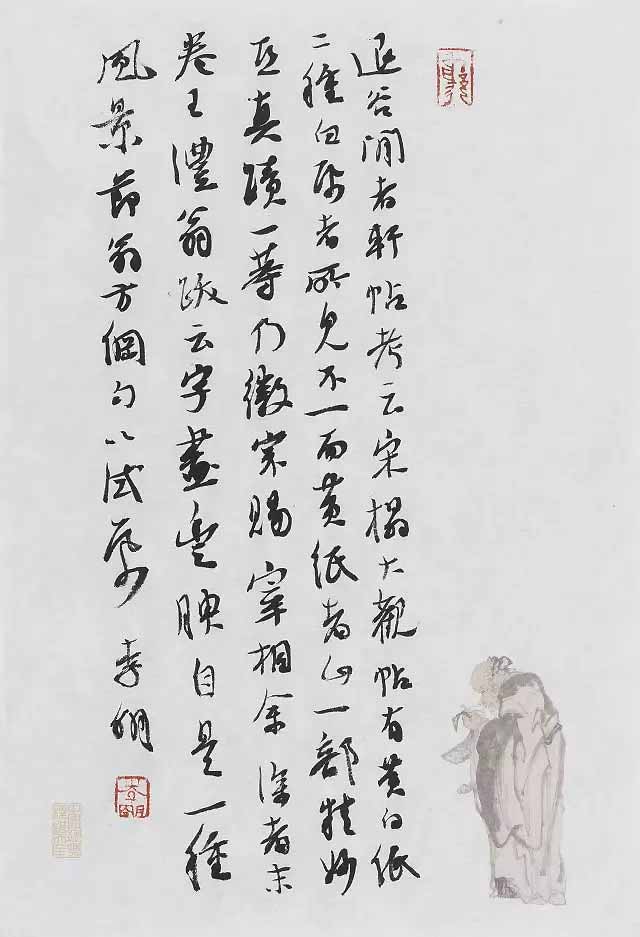 退谷閒者軒帖考云宋榻大觀帖有黄白纸
二種白帋者所见不一而黄纸者止一部精妙
亞真蹟一等乃徽宗賜宰相余深者末
卷王澧翁跋云字畫豐腴自是一種
風景節翁方綱句以試 李